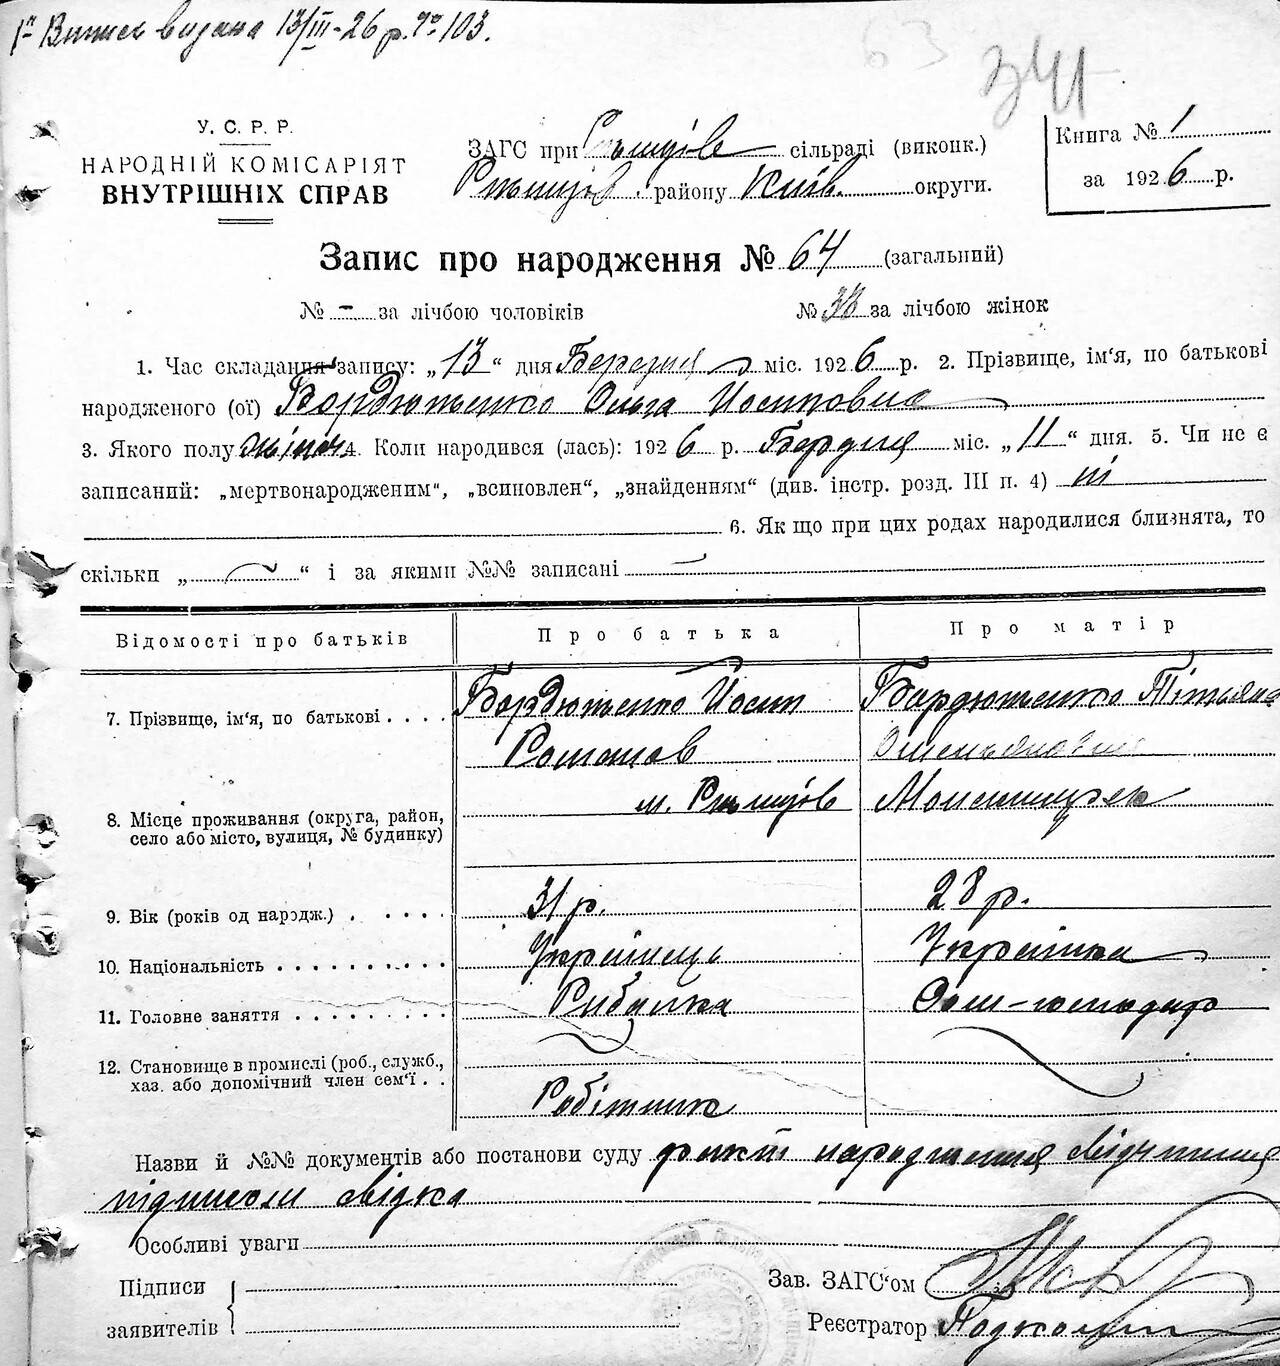 Випись видана 13/III-26 р. № 103.
341
У. С. Р. Р.
НАРОДНІЙ КОМІСАРІЯТ
ВНУТРІШНІХ СПРАВ
ЗАГС при Ржищів сільраді (виконк.)
Ржищів. району Київ. округи.
Книга № 1
за 1926 р.
Запис про народження № 64 (загальний)
№ - за лічбою чоловіків № 38 за лічбою жінок
1. Час складання запису: „13“ дня Березня міс. 1926 р. 2. Прізвище, ім‘я, по батькові
народженого (ої) Бордюженко Ольга Йосиповна
3. Якого полу жіноч 4. Коли народився (лась): 1926 р. Березня міс. „11“ дня. 5. Чи не є
записаний: „мертвонародженим“, „всиновлен“, „знайденням“ (див. інстр. розд. III п. 4) ні
6. Як що при цих родах народилися близнята, то
скільки „ — “ і за якими №№ записані —
Відомості про батьків Про батька Про матір
7. Прізвище, ім‘я, по батькові . . . . Бордюженко Йосип Бордюженко Тітьяна
Романов
8. Місце проживання (округа, район,
село або місто, вулиця, № будинку)
м. Ржищів
9. Вік (років од народж.) . . . . . 31 р. 28 р.
10. Національність . . . . . . . . . . Українець Українка
11. Головне заняття . . . . . . . . . Рибалка Дом-господар
12. Становище в промислі (роб., служб.,
хаз. або допомічний член сем‘ї . .
Робітник
Назви й №№ документів або постанови суду факт народження свідчення
підписом свідка
Особливі уваги
Підписи
заявителів
Зав. ЗАГС‘ом
Реєстратор